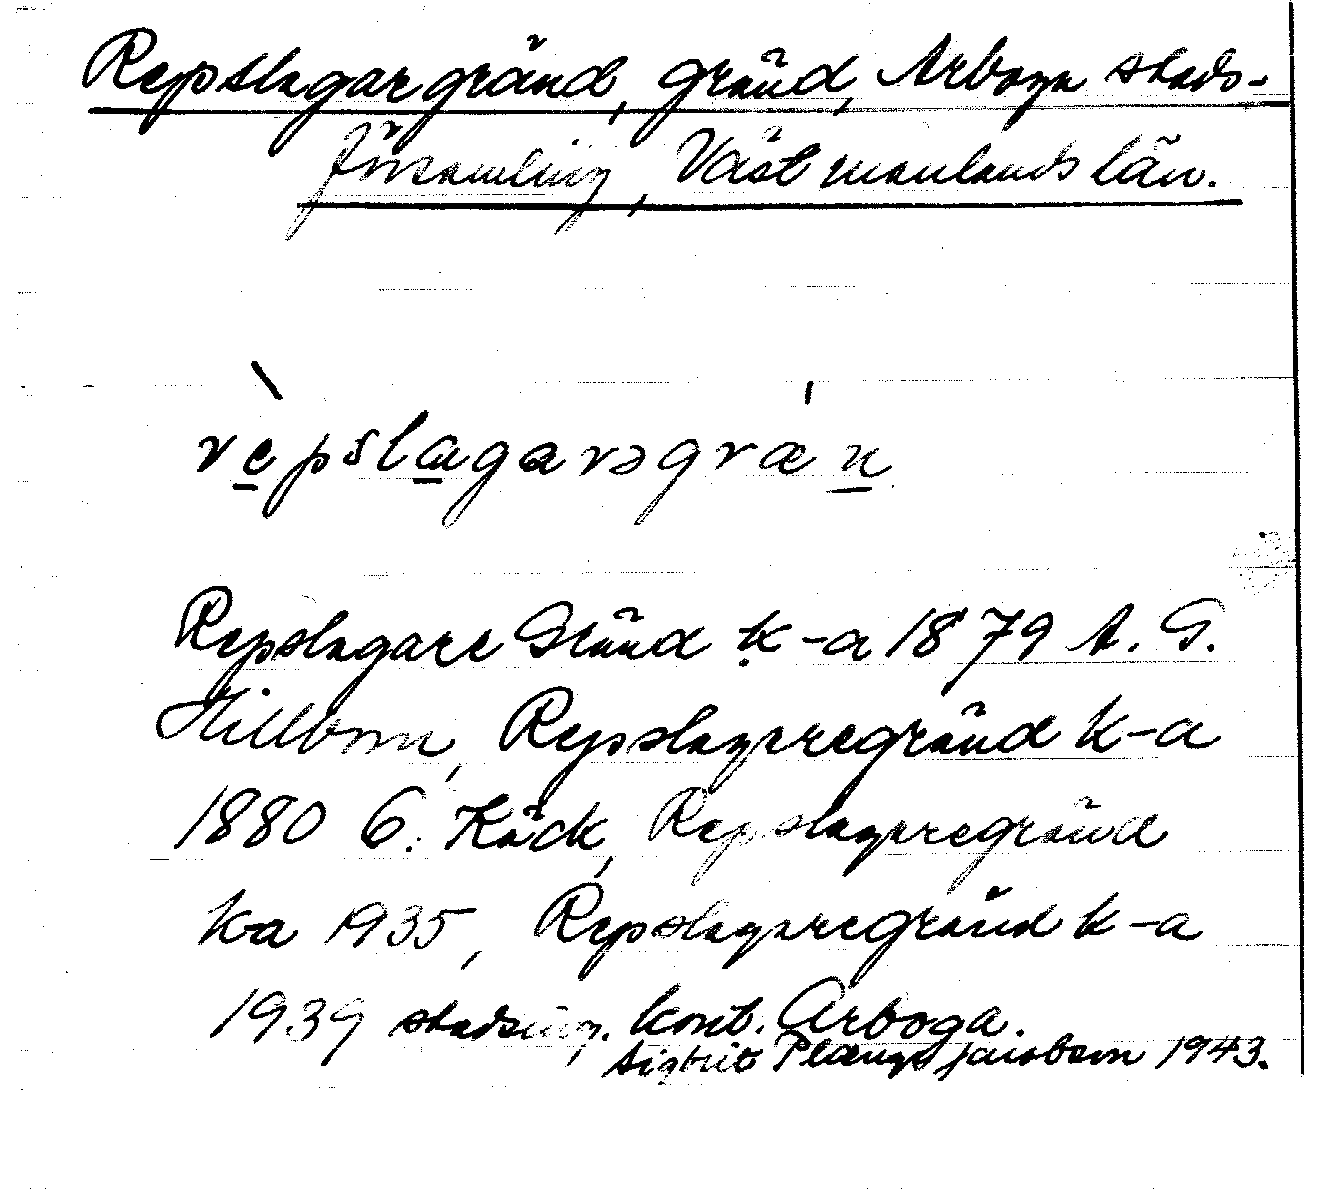 Repslagargränd, gränd, Arboga stads-
församling, Västmanlands län.
rèpslagarəgræ'n
Repslagare Gränd k-a 1879 A. G.
Hillbom, Repslagaregränd k-a
1880 G. Käck, Repslagaregränd
k-a 1935, Repslagaregränd k-a
1939 stadsing. kont. Arboga.
Sigbrit Plænge Jacobson 1943.